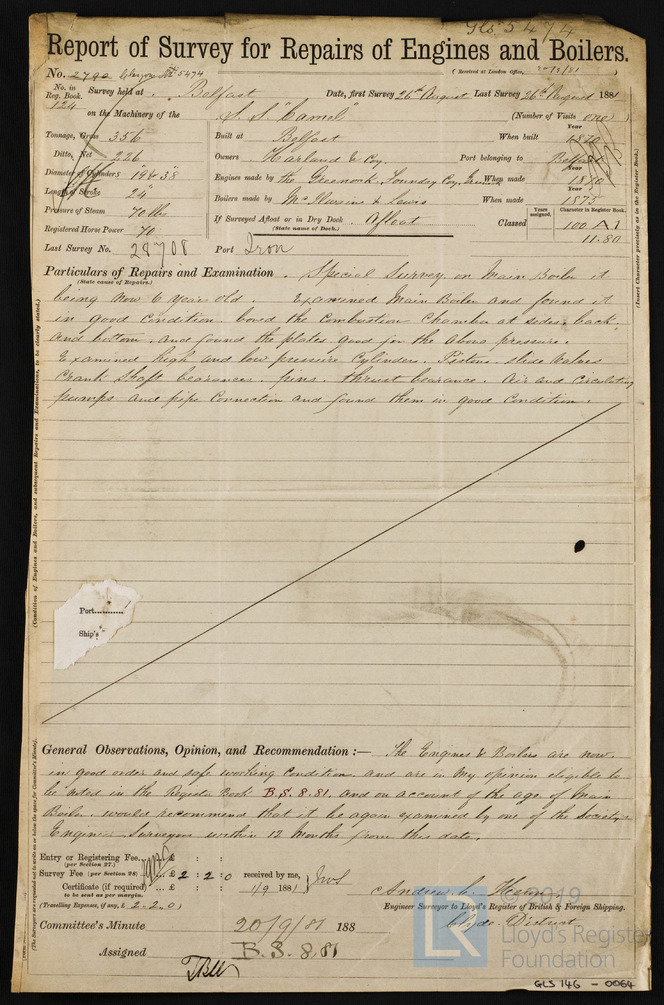 Gls 5474
Report of Survey for Repairs of Engines and Boilers.
No. 2790 Glasgow No 5474 (Received at London Office, 20/9/81)
No. in Reg. Book. 124 Survey held at Belfast Date, first Survey 26th August Last Survey 26th August 1881
on the Machinery of the S. S. "Camel" (Number of Visits one)
Tonnage, Gross 356 Built at Belfast When built Year 1870
Ditto, Net 226 Owners Harland & Coy. Port belonging to Belfast
Diameter of Cylinders 19 & 38" Engines made by the Greenock Foundry Coy, Greenock When made Year 1870
Length of Stroke 24" Boilers made by & Lewis When made Year 1875
Pressure of Steam 70 lbs If Surveyed Afloat or in Dry Dock Afloat Classed Years assigned. Character in Register Book. 100 A1
(State name of Dock.) 11.80
Registered Horse Power 70
Last Survey No. 28708 Port Iron
Particulars of Repairs and Examination. Special Survey on Main Boiler it
(State cause of Repairs.)
being now 6 years old. Examined Main Boiler and found it
in good condition. bored the Combustion Chamber at sides. back.
and bottom. and found the plates good for the above pressure.
Examined high and low pressure Cylinders. Pistons. slide Valves
Crank Shaft bearances. pins. thrust bearance. Air and Circulating
pumps and pipe Connection and found them in good Condition.
(Insert Character precisely as in the Register Book.)
(Condition of Engines and Boilers, and subsequent Repairs and Examinations, to be clearly stated.)
Port............
Ship's
General Observations, Opinion, and Recommendation :— The Engines & Boilers are now
in good order and safe working Condition and are in my opinion eligible to
be noted in the Register Book B.S. 8.81. and on account of the age of Main
Boiler. would recommend that it be again examined by one of the Society's
Engineer Surveyors within 12 months from this date.
(The Surveyors are requested not to write on or below the space for Committee's Minute.)
Entry or Registering Fee... £ : :
(per Section 27.)
Survey Fee (per Section 28) ... £ 2 : 2 : 0 received by me,
Certificate (if required) ... £ : : 1/9 1881
to be sent as per margin.
(Travelling Expenses, if any, £ 2-2-0)
Andrew
Engineer Surveyor to Lloyd's Register of British & Foreign Shipping.
Clyde District
Committee's Minute 20/9/81 188
Assigned B.S. 8,81
© 2019
Lloyd's Register
Foundation
GLS 146 - 0064